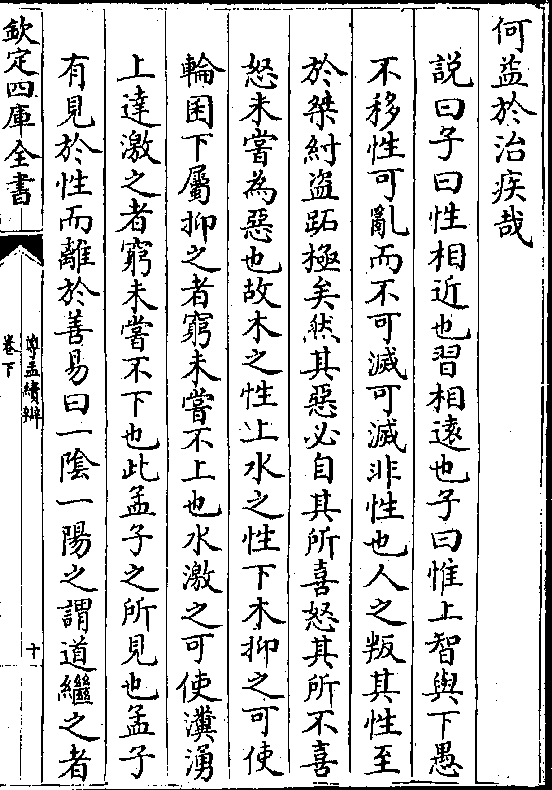 何益於治疾哉
説曰子曰性相近也習相逺也子曰惟上智與下愚
不移性可亂而不可滅可滅非性也人之叛其性至
於桀紂盗跖極矣然其惡必自其所喜怒其所不喜
怒未嘗為惡也故木之性上水之性下木抑之可使
輪囷下屬抑之者窮未嘗不上也水激之可使瀵湧
上達激之者窮未嘗不下也此孟子之所見也孟子
有見於性而離於善易曰一隂一陽之謂道繼之者
欽定四庫全書
尊孟續辨
卷下
十